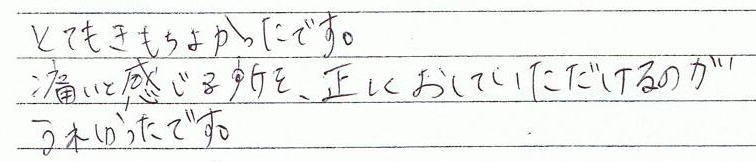 とてもきもちよかったです。
痛いと感じる所を、正しくおしていただけるのが
うれしかったです。